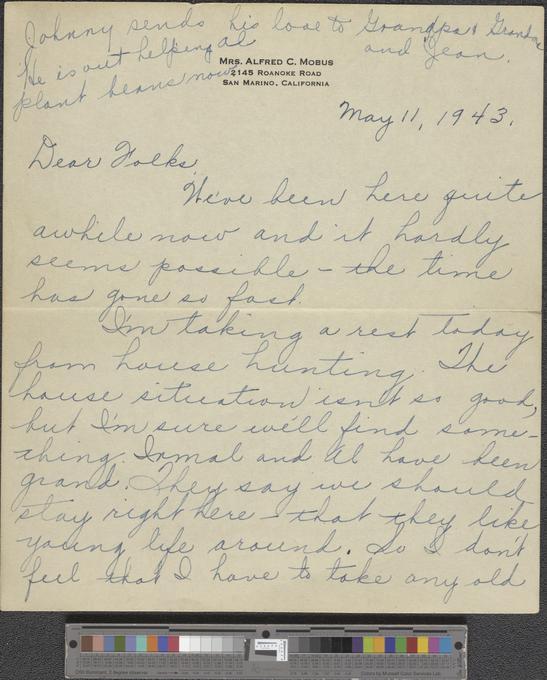 Johnny sends his love to Grandpa & Grandma
and Jean.
He is out helping Al
plant beans now
MRS. ALFRED C. MOBUS
2145 ROANOKE ROAD
SAN MARINO, CALIFORNIA
May 11, 1943.
Dear Folks,
We've been here quite
awhile now and it hardly
seems possible – the time
has gone so fast.
I'm taking a rest today
from house hunting. The
house situation isn't so good,
but I'm sure we'll find some-
thing. Irmal and Al have been
grand. They say we should
stay right here – that they like
young life around. So I don't
feel that I have to take any old